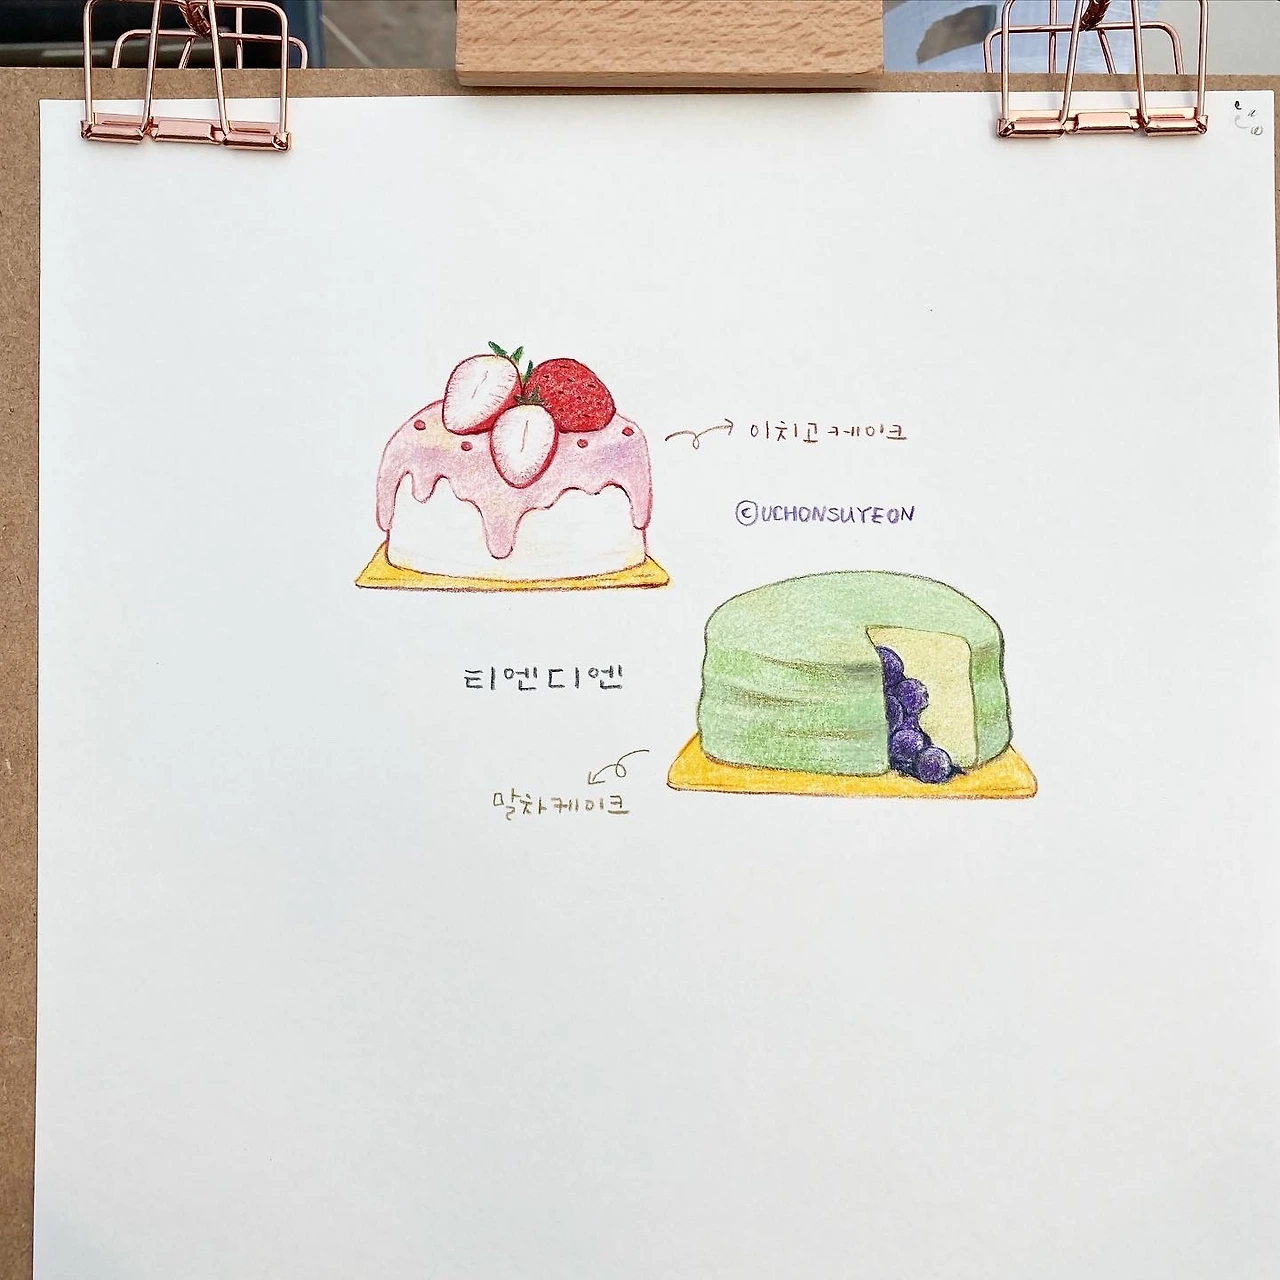 이치고케이크
©UCHONSUYEON
티엔디엔
말차케이크